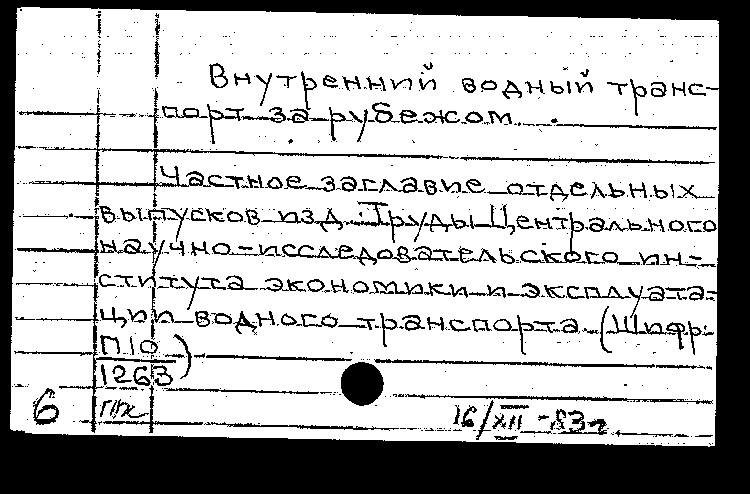 Внутренний водный транс-
порт за рубежом.
Частное заглавие отдельных
выпусков изд. Труды Центрального
научно-исследовательского ин-
ститута экономики и эксплуата-
ции водного транспорта (Шифр:
П10)
1263
6
16/XII -83г.